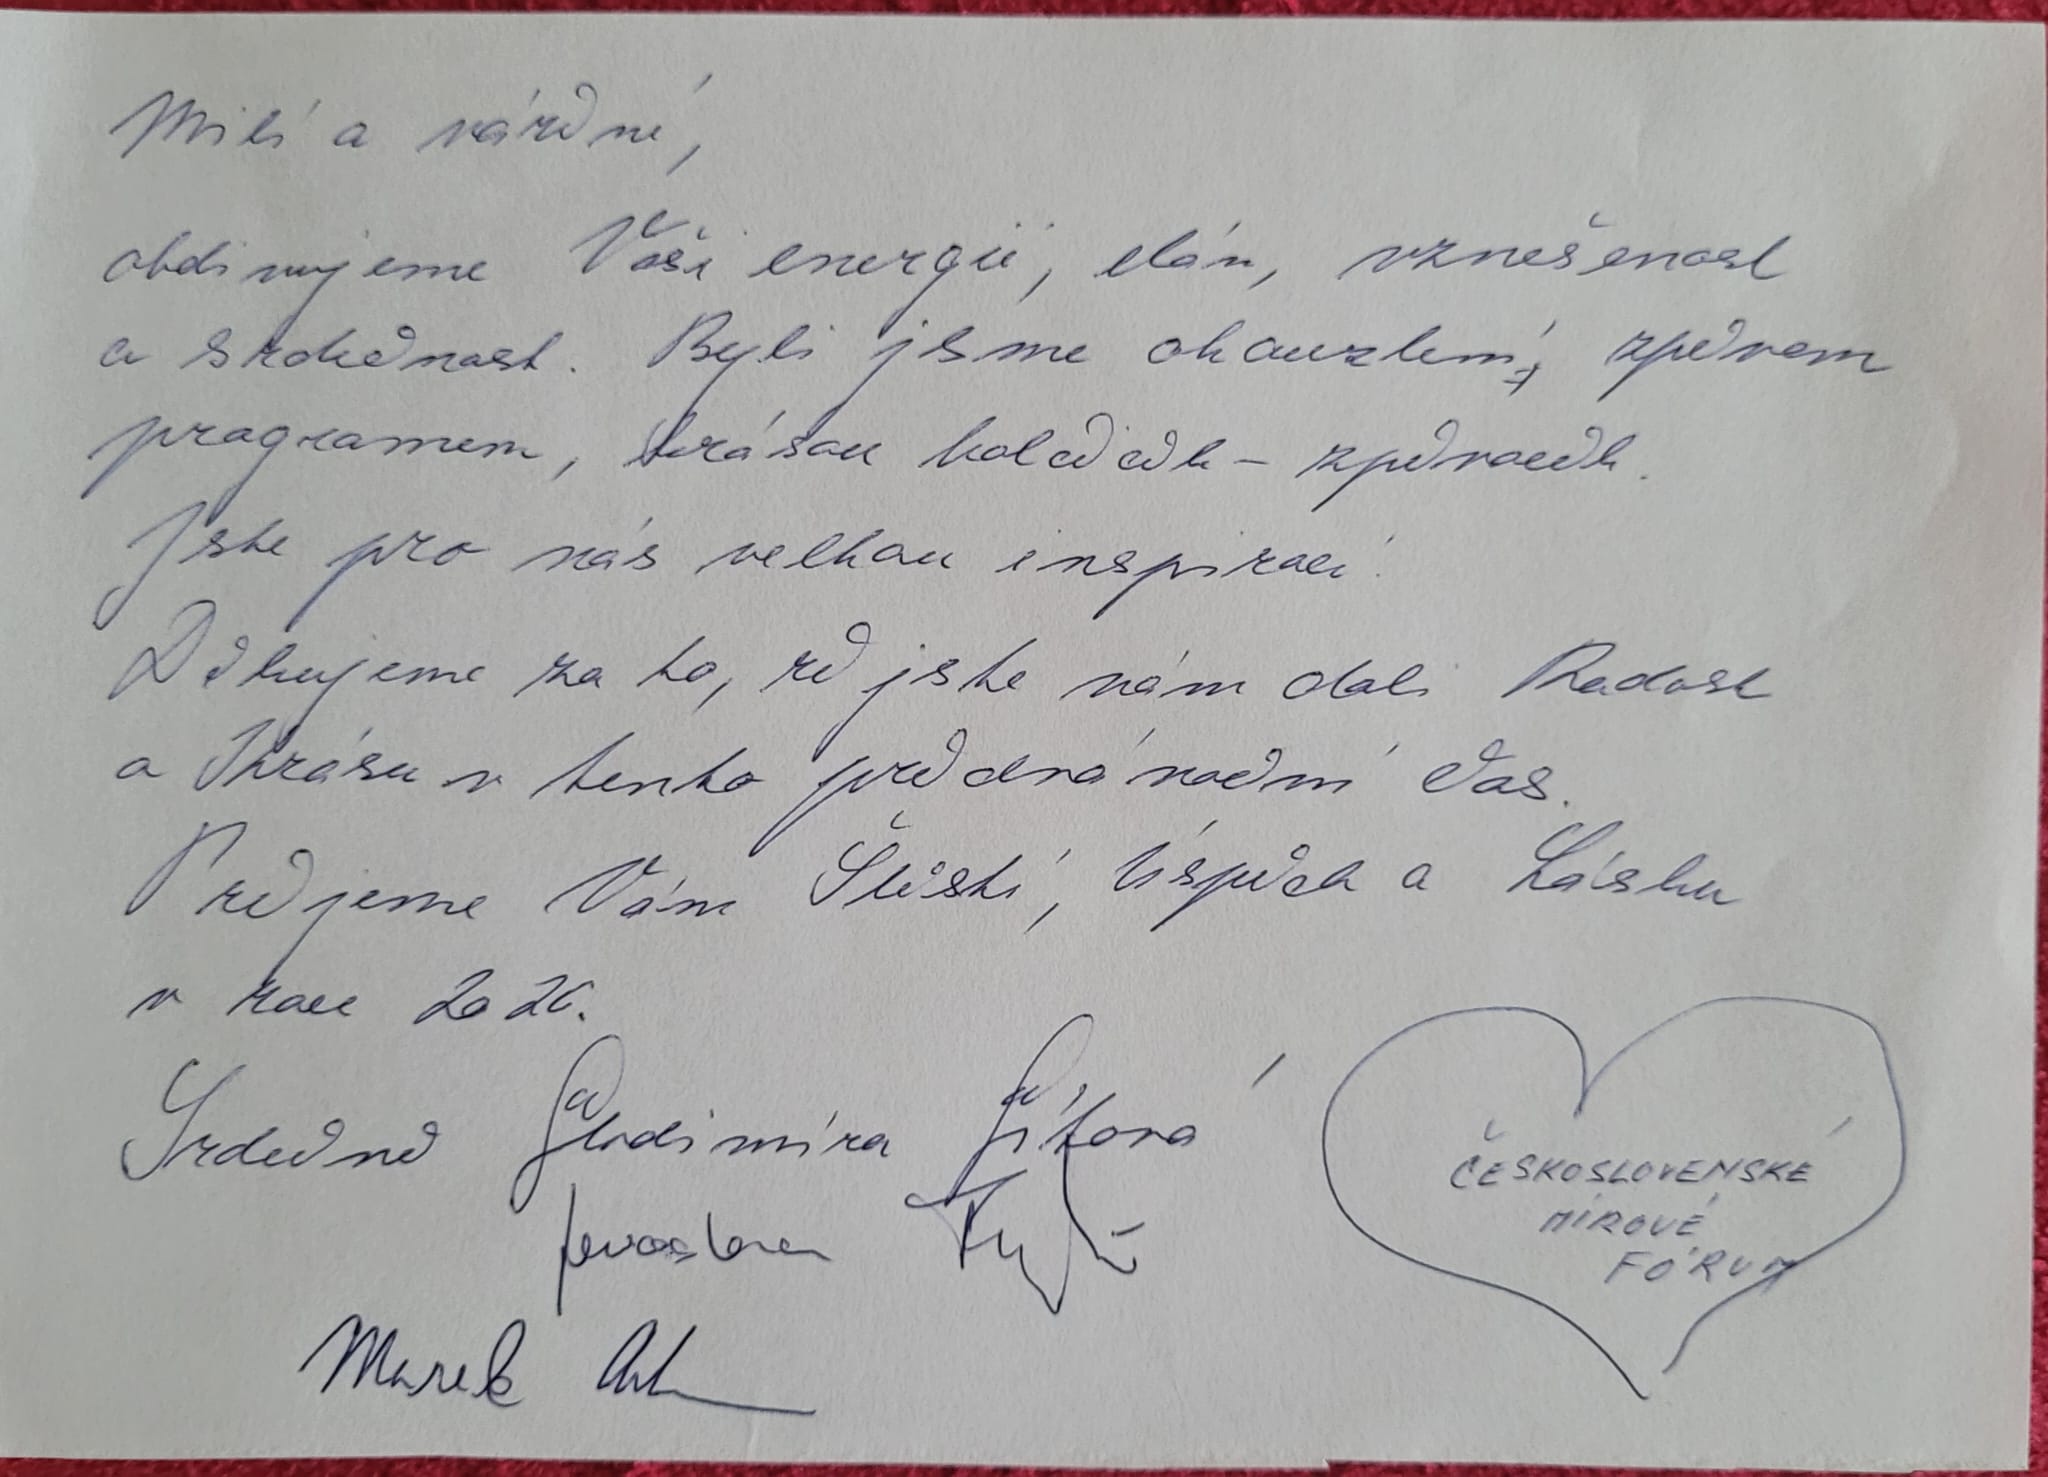 Milí a vážení,
obdivujeme Vaši energii, elán, vznešenost
a srdečnost. Byli jsme okouzleni, zpěvem
programem, krásou koledách - zpěvech.
Jste pro nás velkou inspirací.
Děkujeme za to, že jste nám dali Radost
a Krásu v tento předvánoční čas.
Přejeme Vám Štěstí, Úspěch a Lásku
v roce 2026.
Srdečně Vladimíra Vítová
Jaroslava
Marek
ČESKOSLOVENSKÉ
MÍROVÉ
FÓRUM